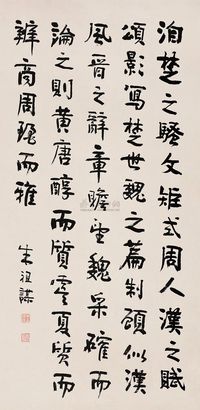 洎楚之騷文矩式周人漢之賦
頌影寫楚世魏之篇制頗似漢
風晉之辭章瞻望魏采確而
論之則黃唐醇而質虞夏質而
辨商周麗而雅
朱祖謀